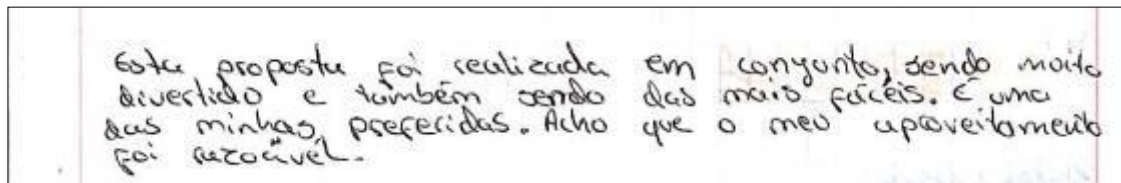 Esta proposta foi realizada em conjunto, sendo muito
divertido e também sendo das mais fáceis. É uma
das minhas preferidas. Acho que o meu aproveitamento
foi razoável.